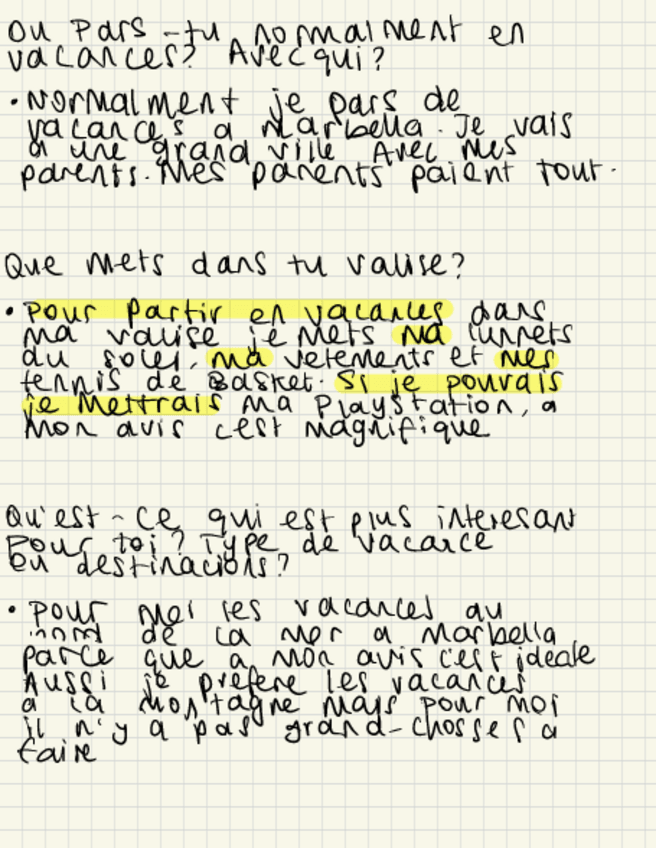 Ou Pars-tu normalment en
vacances? Avec qui?
• Normalment je pars de
vacances a Marbella. Je vais
a une grand ville Avec Mes
parents. Mes parents paient tout.
Que Mets dans tu valise?
• Pour Partir en vacances dans
ma valise je Mets Ma lunnets
du soleil, ma vetements et mes
tennis de Basket. Si je pouvais
je Mettrais Ma Playstation, a
Mon avis c'est magnifique
Qu'est-ce qui est plus interesant
Pour toi? Type de vacance
ou destinacions?
• Pour Moi les vacances au
de la Mer a Marbella
parce que a Mon avis c'est ideale
Aussi je prefere les vacances
a la Montagne Mais pour moi
il n'y a pas grand-chosses a
faire